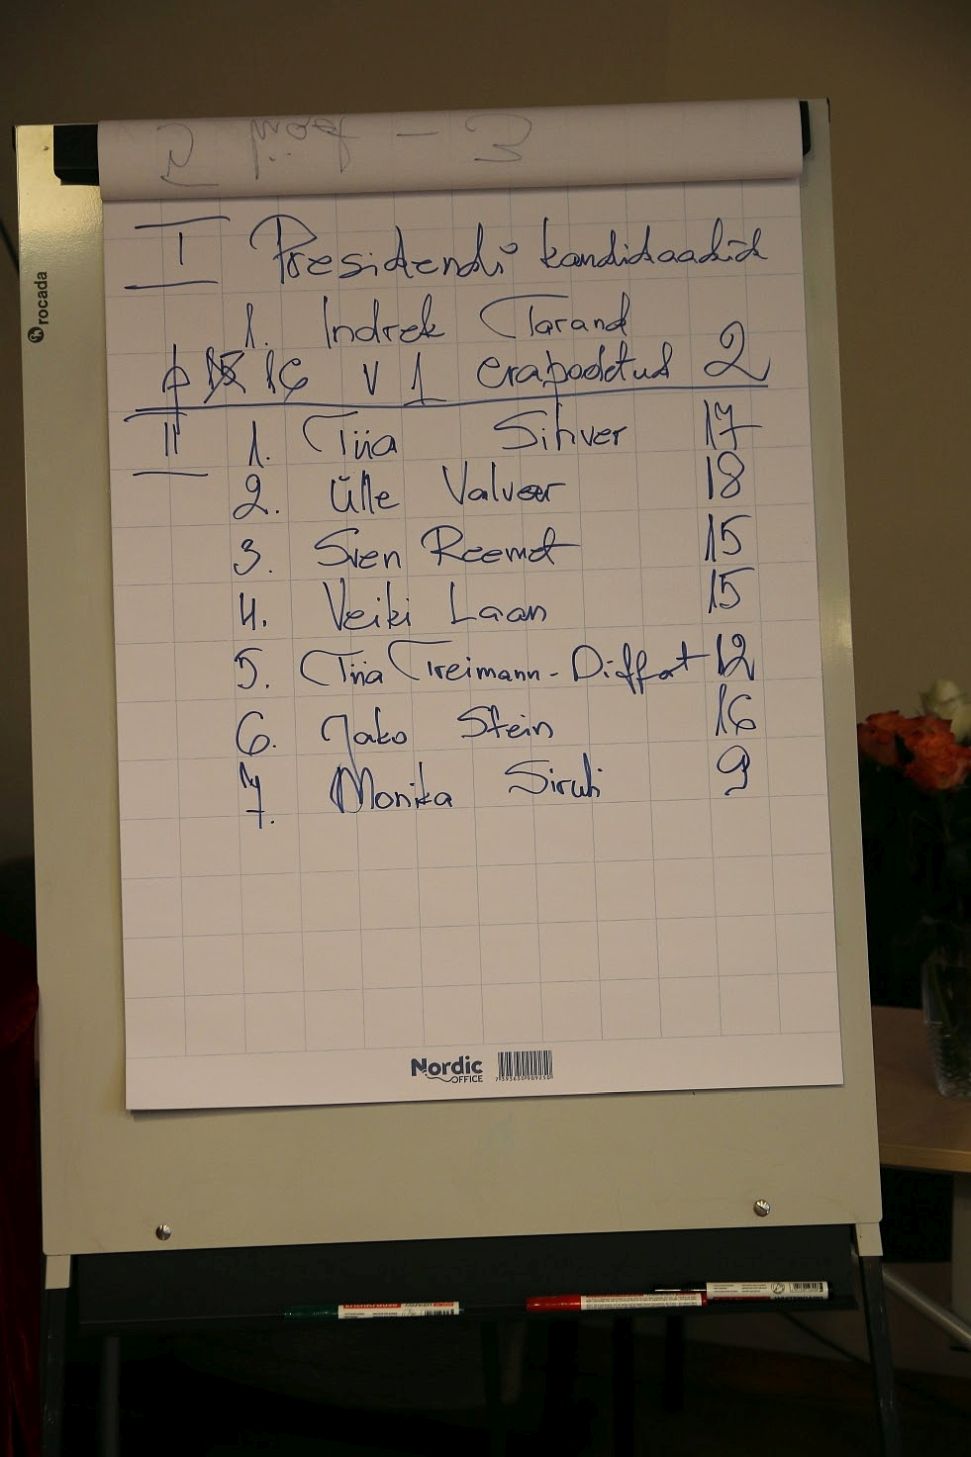 rocada
I Presidendi kandidaadid
1. Indrek Tarand
p 15 16 v 1 erapooletud 2
II 1. Tiia Sihver 17
2. Ülle Valveer 18
3. Sven Reemet 15
4. Veiki Laan 15
5. Tiia Treimann-Diffat 12
6. Jako Stein 16
7. Monika Siruli 9
Nordic
OFFICE